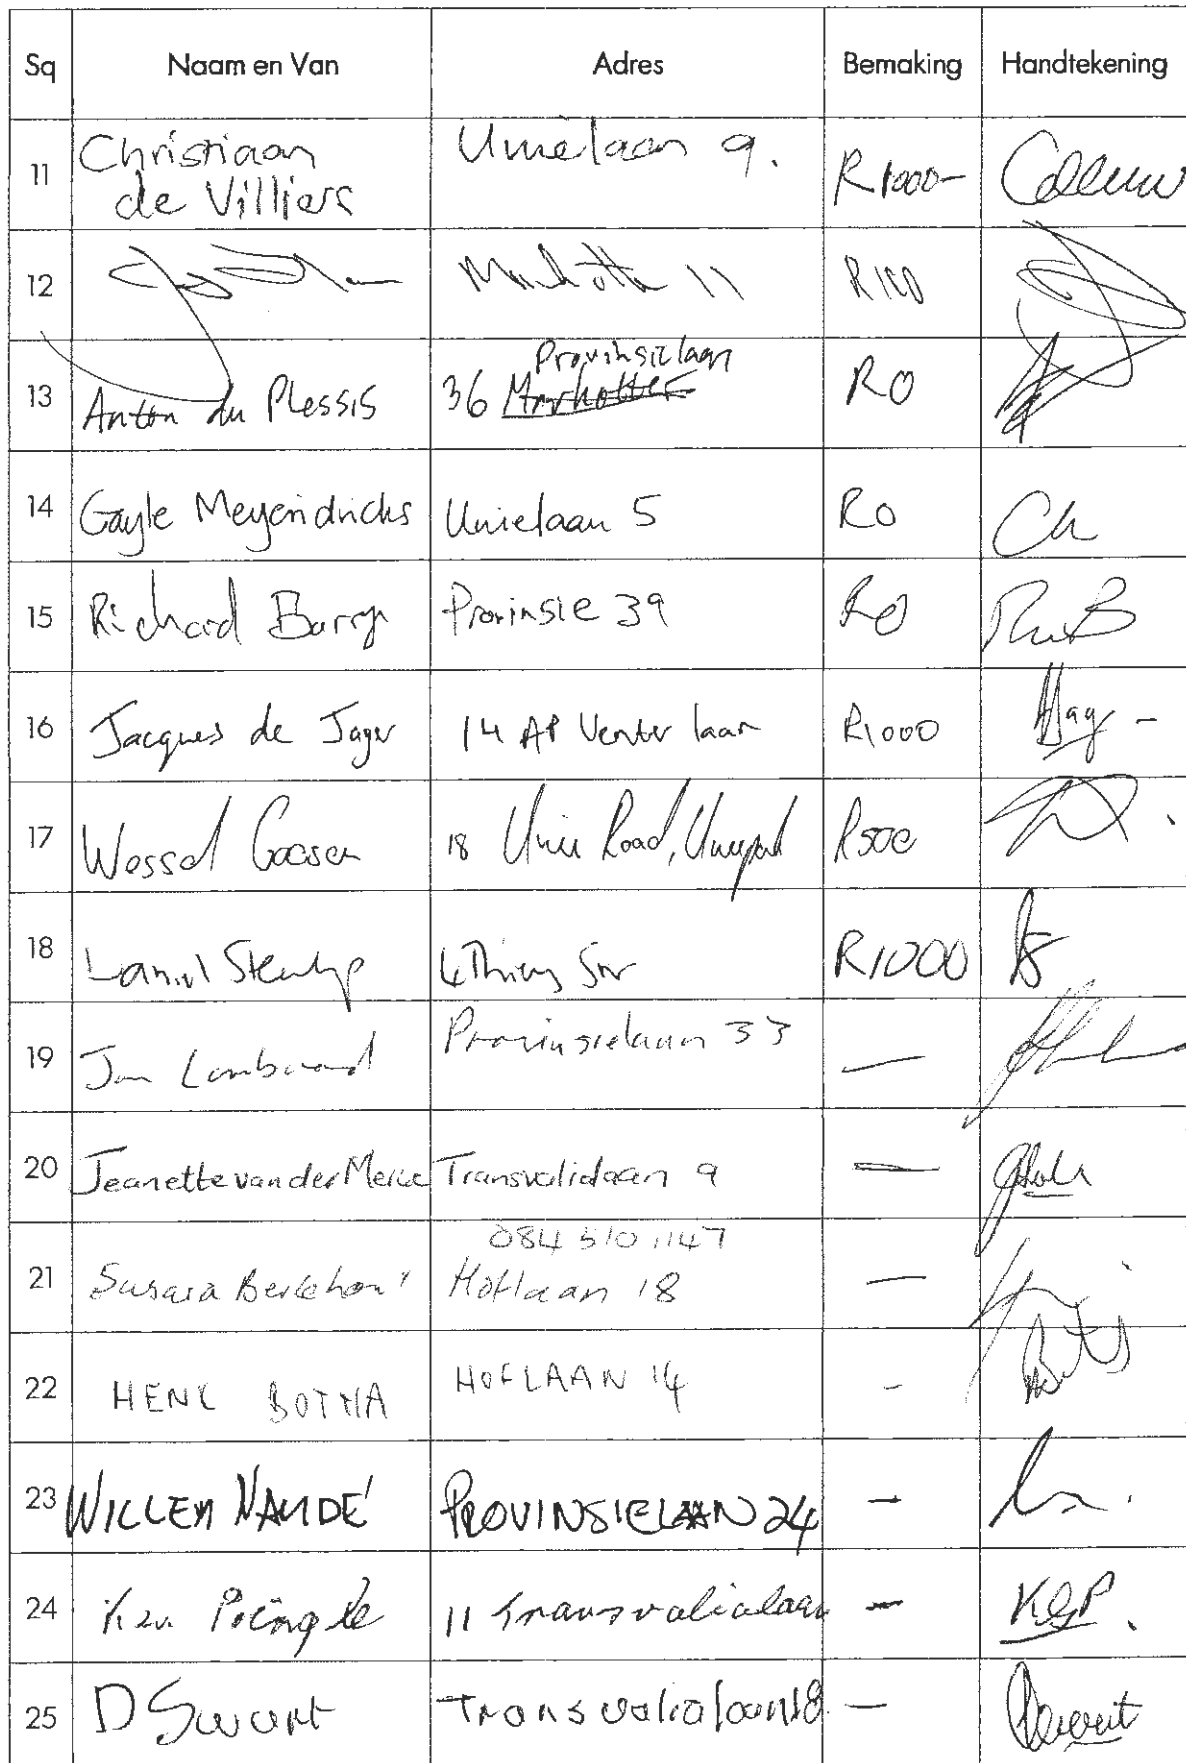 Sq Naam en Van Adres Bemaking Handtekening
11 Christiaan de Villiers Unielaan 9. R1000-
12 11 R100
13 Anton du Plessis 36 Provinsielaan R0
14 Gayle Meyendricks Unielaan 5 R0
15 Richard Barry Provinsie 39 R0
16 Jacques de Jager 14 AP Venter laan R1000
17 Wessel Goosen 18 Unie Road, Uniepark R500
18 R1000
19 Jan Lombaard Provinsielaan 33 —
20 Jeanette van der Merwe Transvalialaan 9 —
21 Susara 084 510 1147
Hoflaan 18 —
22 HENK BOTHA HOFLAAN 14 -
23 WILLEM NAUDÉ PROVINSIELAAN 24 —
24 Ken Pringle 11 Transvalialaan — KGP.
25 D Swart Transvalialaan 18 —